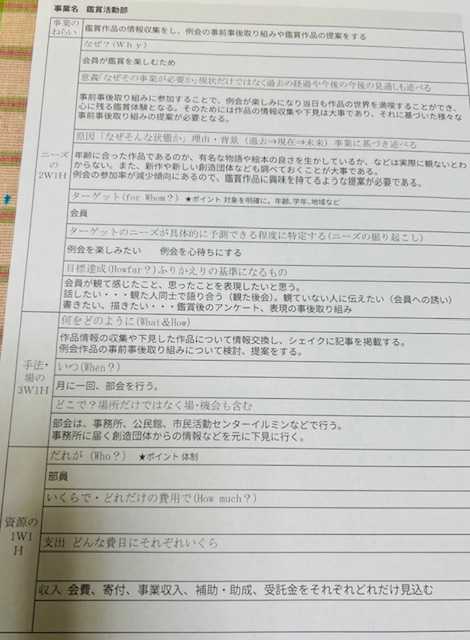 事業名 鑑賞活動部
事業のねらい 鑑賞作品の情報収集をし、例会の事前事後取り組みや鑑賞作品の提案をする
ニーズの2W1H
なぜ?(Why)
会員が鑑賞を楽しむため
意義「なぜその事業が必要か」現状だけではなく過去の経過や今後の今後の見通しも述べる
事前事後取り組みに参加することで、例会が楽しみになり当日も作品の世界を満喫することができ、
心に残る鑑賞体験となる。そのためには作品の情報収集や下見は大事であり、それに基づいた様々な
事前事後取り組みの提案が必要となる。
原因「なぜそんな状態か」理由・背景(過去⇒現在⇒未来)事業に基づき述べる
年齢に合った作品であるのか、有名な物語や絵本の良さを生かしているか、などは実際に観ないとわ
からない。また、新作や新しい創造団体なども調べておくことが大事である。
例会の参加率が減少傾向にあるので、鑑賞作品に興味を持てるような提案が必要である。
ターゲット(for Whom?) ★ポイント 対象を明確に。年齢、学年、地域など
会員
ターゲットのニーズが具体的に予測できる程度に特定する(ニーズの掘り起こし)
例会を楽しみたい 例会を心待ちにする
目標達成(Howfar?)ふりかえりの基準になるもの
会員が観て感じたこと、思ったことを表現したいと思う。
話したい・・・観た人同士で語り合う(観た後会)。観ていない人に伝えたい(会員への誘い)
書きたい、描きたい・・・鑑賞後のアンケート、表現の事後取り組み
手法・場の3W1H
何をどのように(What&How)
作品情報の収集や下見した作品について情報交換し、シェイクに記事を掲載する。
例会作品の事前事後取り組みについて検討、提案をする。
いつ(When?)
月に一回、部会を行う。
どこで?場所だけではなく場・機会も含む
部会は、事務所、公民館、市民活動センターイルミンなどで行う。
事務所に届く創造団体からの情報などを元に下見に行く。
資源の1W1H
だれが(Who?) ★ポイント 体制
部員
いくらで・どれだけの費用で(How much?)
支出 どんな費目にそれぞれいくら
収入 会費、寄付、事業収入、補助・助成、受託金をそれぞれどれだけ見込む